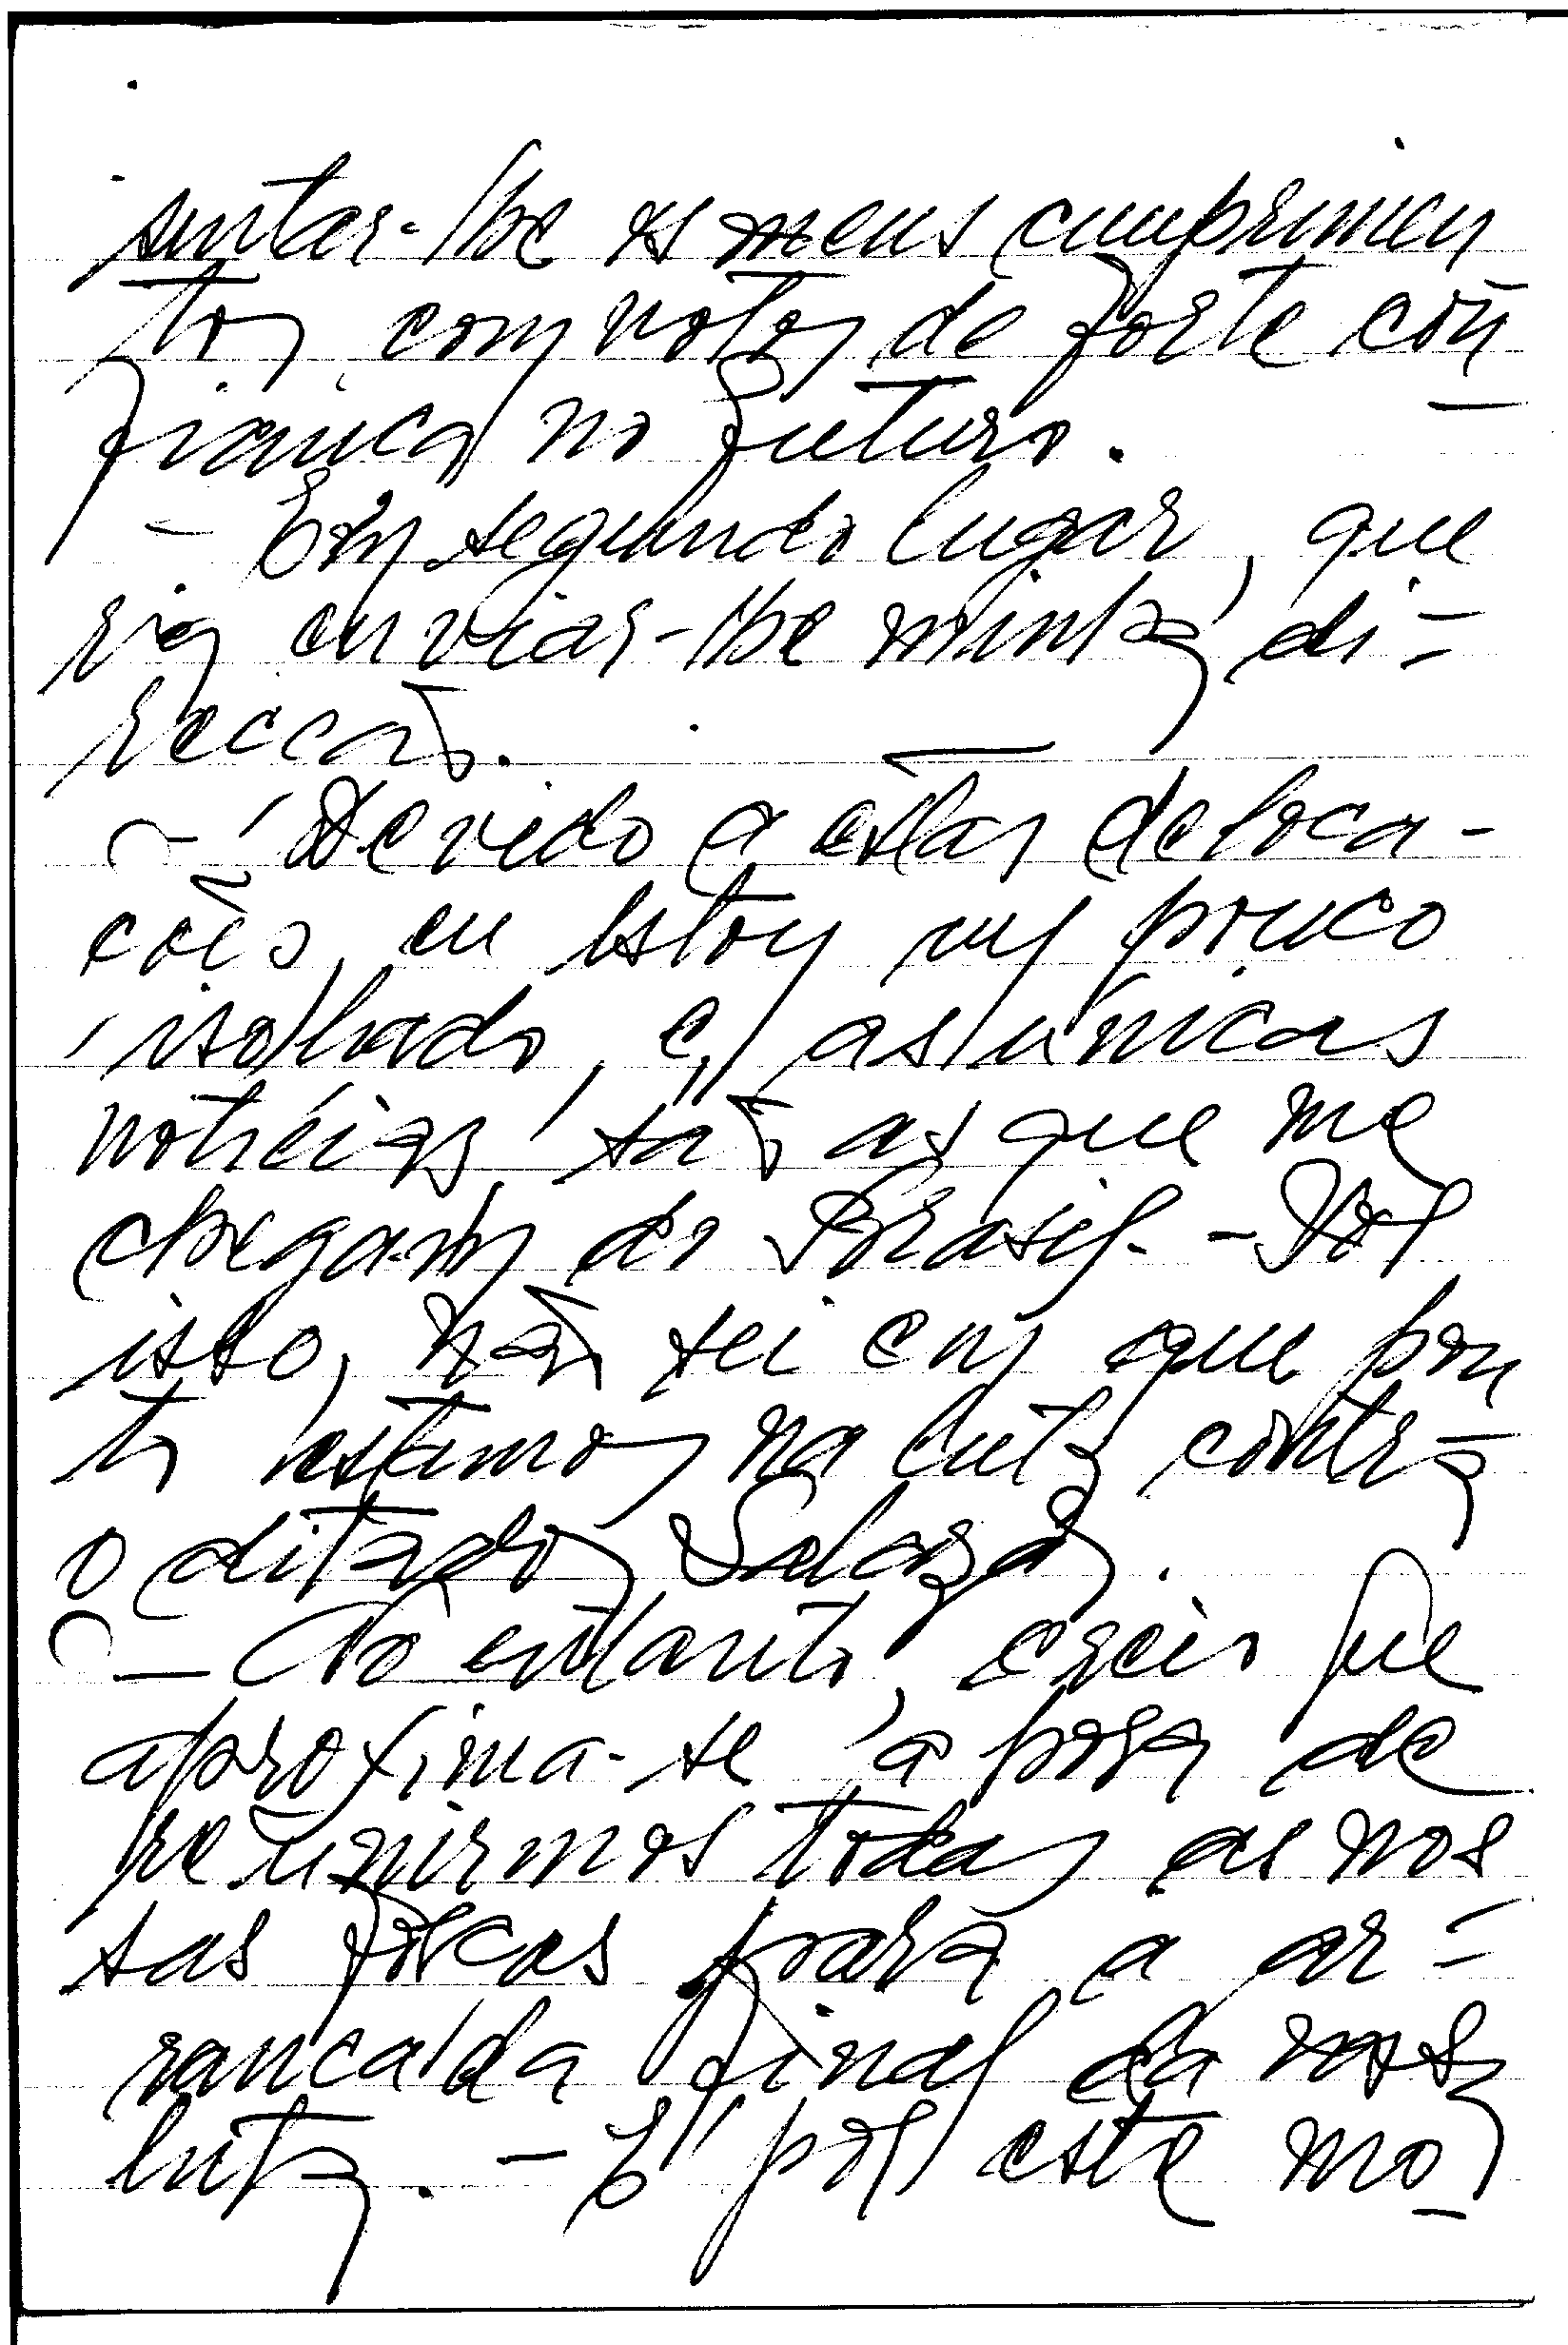 sentar-lhe os meus cumprimen
tos, com votos de forte con
fiança no futuro.
- Em segundo lugar, que
ria enviar-lhe minha di-
recção.
- Devido a estas desloca-
ções, eu estou um pouco
isolado, e, as únicas
notícias são as que me
chegam do Brasil. - Por
isso, não sei em que pon
to estamos na luta contra
o ditador Salazar.
- No entanto, creio que
aproxima-se a hora de
reunirmos todas as nos
sas forças para a ar-
rancada final da nossa
luta. - É por este mo